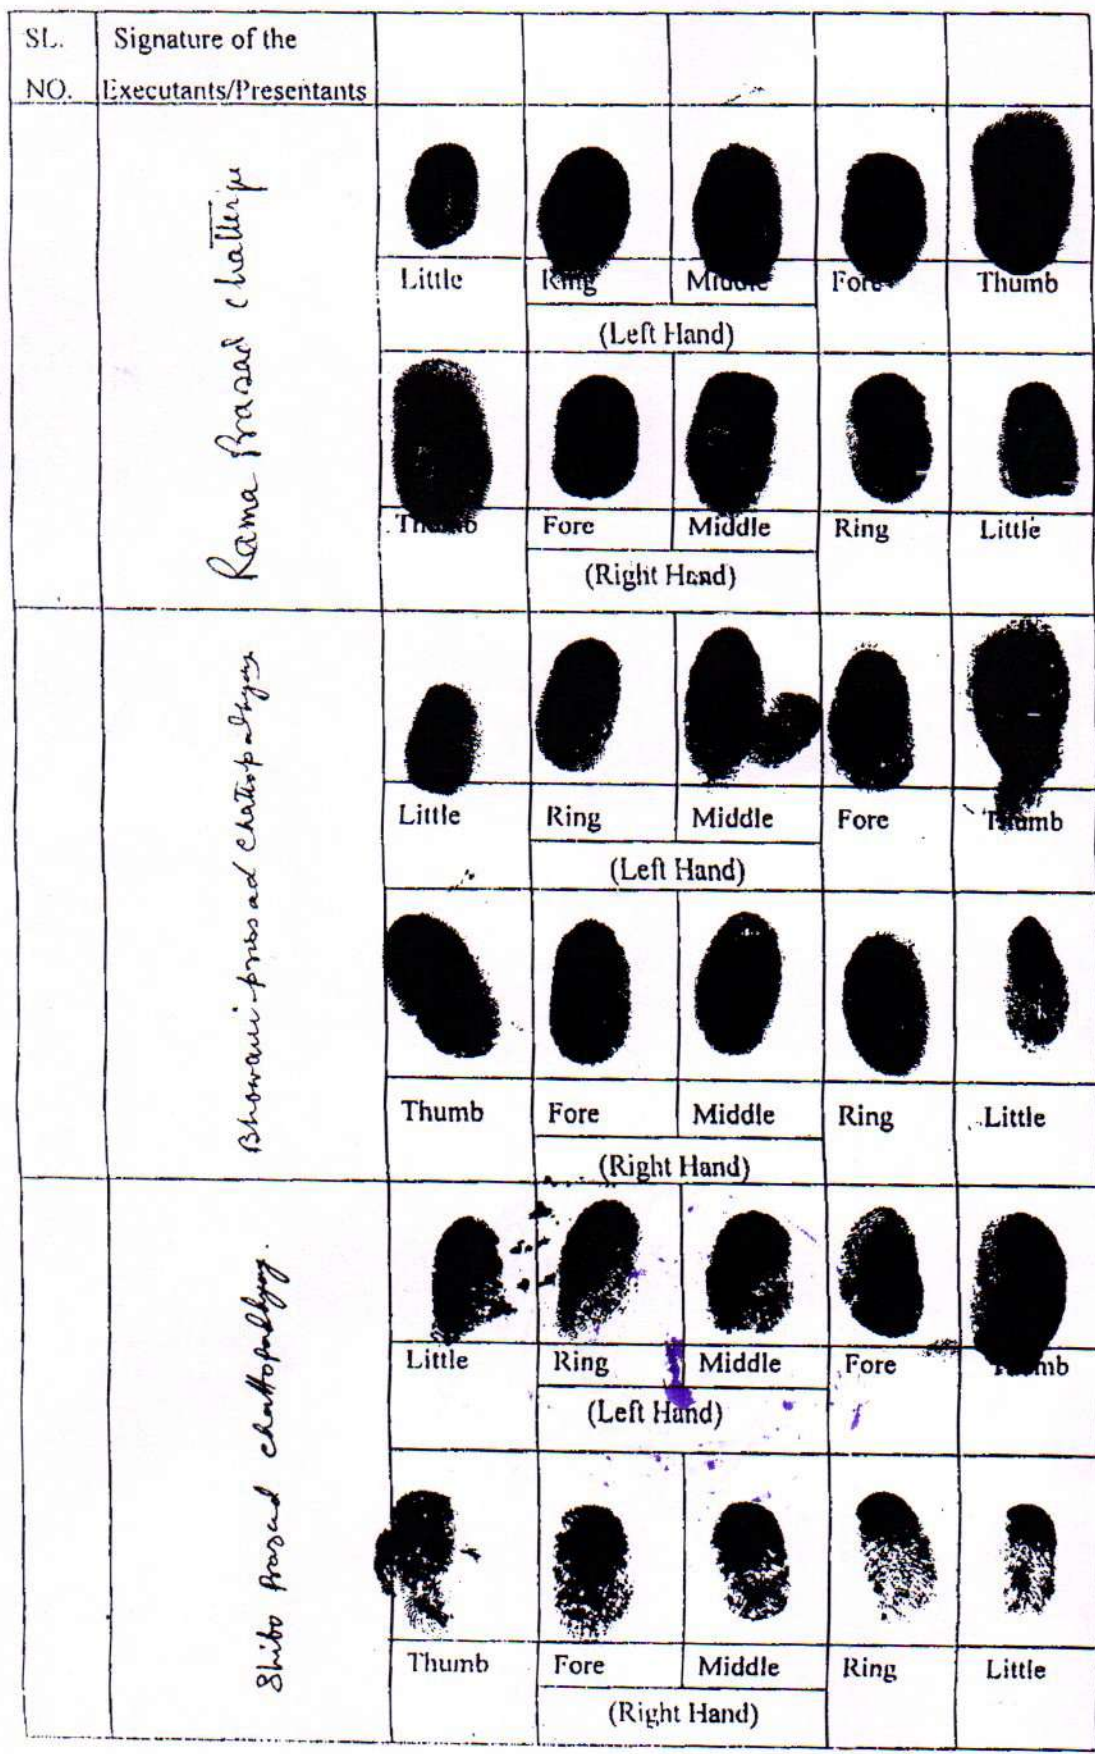 SL. Signature of the
NO. Executants/Presentants
Rama Prasad Chatterjee
Little Ring Middle Fore Thumb
(Left Hand)
Thumb Fore Middle Ring Little
(Right Hand)
Bhowani prossad Chattopadhyay
Little Ring Middle Fore Thumb
(Left Hand)
Thumb Fore Middle Ring Little
(Right Hand)
Shibo Prasad Chattopadhyay.
Little Ring Middle Fore Thumb
(Left Hand)
Thumb Fore Middle Ring Little
(Right Hand)